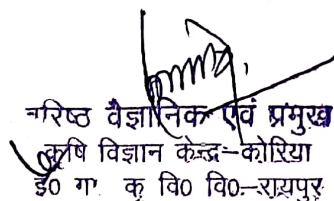 वरिष्ठ वैज्ञानिक एवं प्रमुख
कृषि विज्ञान केन्द्र–कोरिया
इ0 गा0 कृ0 वि0 वि0–रायपुर